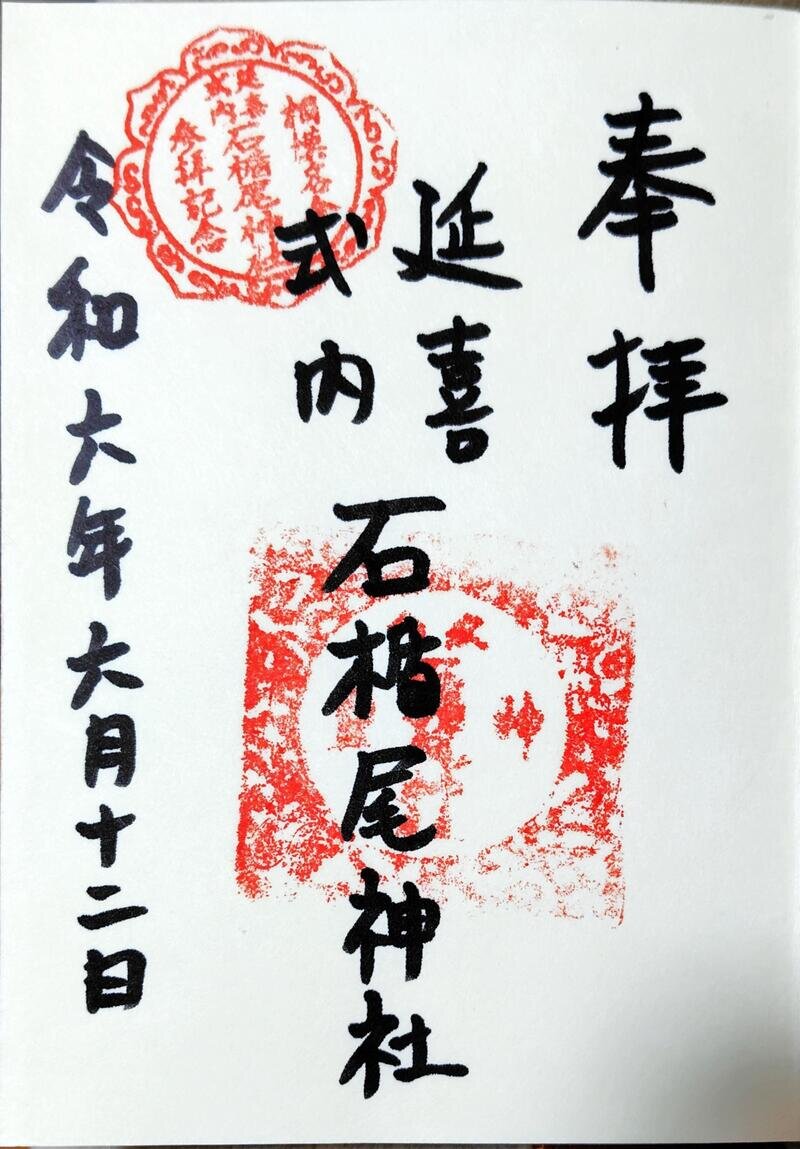 奉拝
延喜
式内
石楯尾神社
令和六年六月十二日
延喜
式内
石楯尾神社
参拝記念